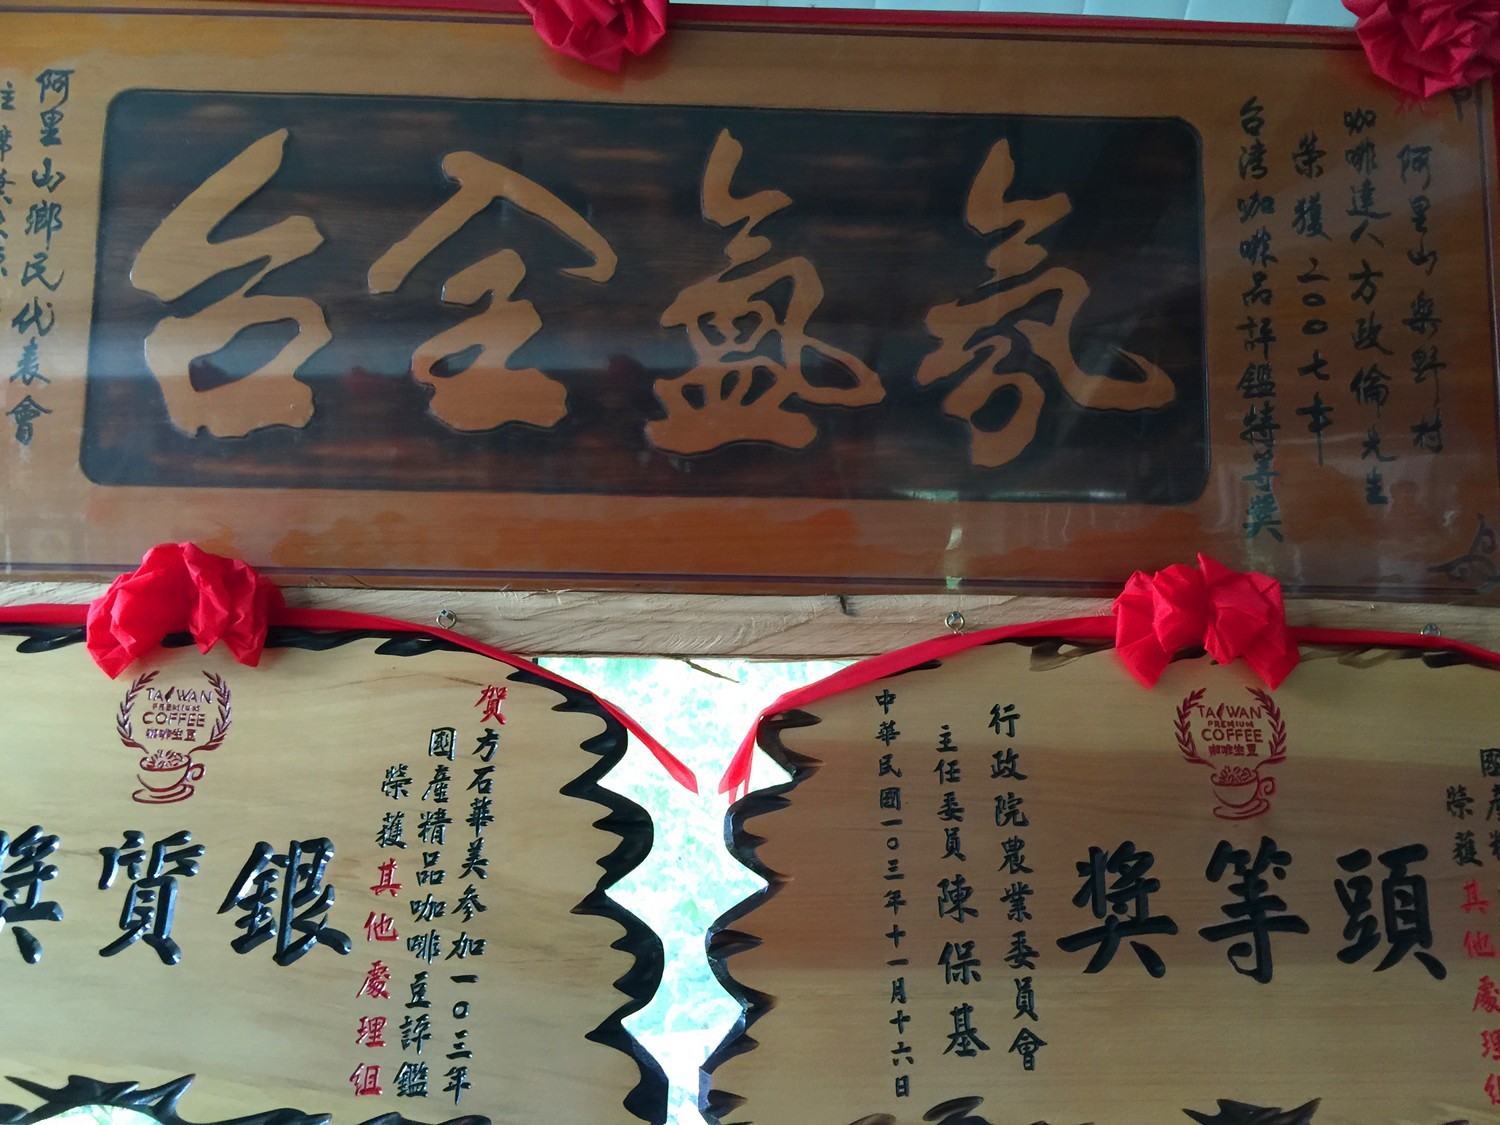 阿里山樂野村
咖啡達人方政倫先生
榮獲二00七年
台湾咖啡品評鑑特等獎
氛氳全台
阿里山鄉民代表會
主席
榮獲其他處理組
TAIWAN
PREMIUM
COFFEE
咖啡生豆
頭等獎
行政院農業委員會
主任委員陳保基
中華民國一0三年十一月十六日
賀方石華美參加一0三年
國產精品咖啡豆評鑑
榮獲其他處理組
TAIWAN
PREMIUM
COFFEE
咖啡生豆
銀質獎